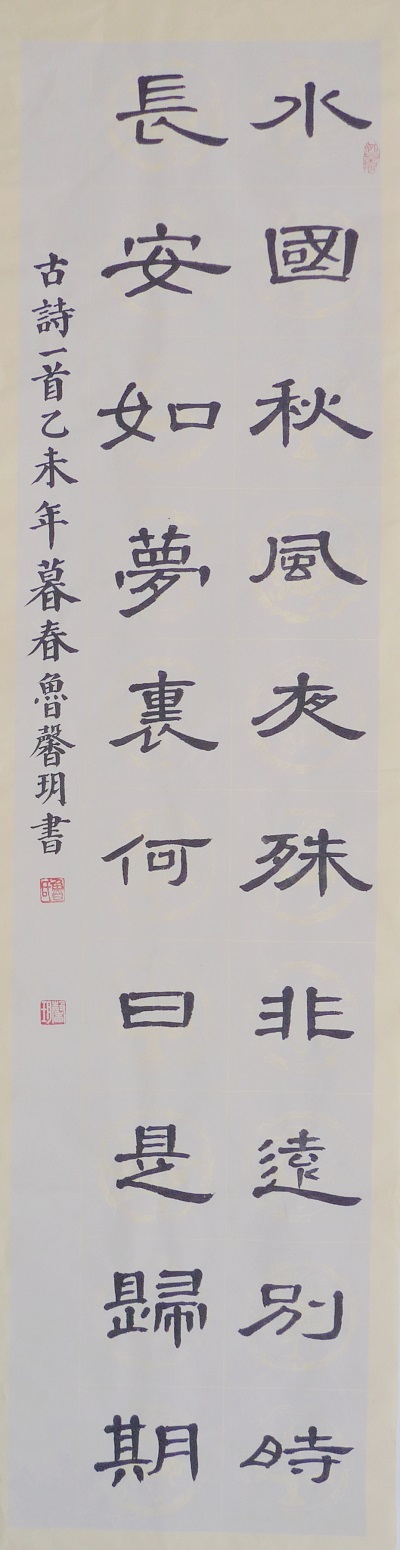 水國秋風夜殊非遠別時
長安如夢裏何日是歸期
古詩一首乙未年暮春魯馨玥書